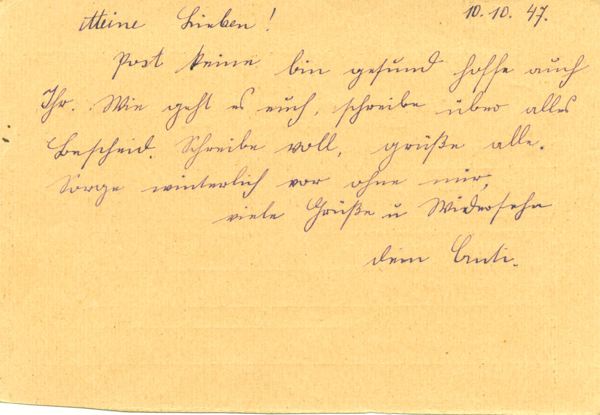 Meine Lieben! 10.10.47.
Post keine bin gesund hoffe auch
Ihr. Wie geht es euch, schreibe über alles
Bescheid. Schreibe voll, grüße alle.
Sorge winterlich vor ohne mir,
viele Grüße u Wiedersehn
dein